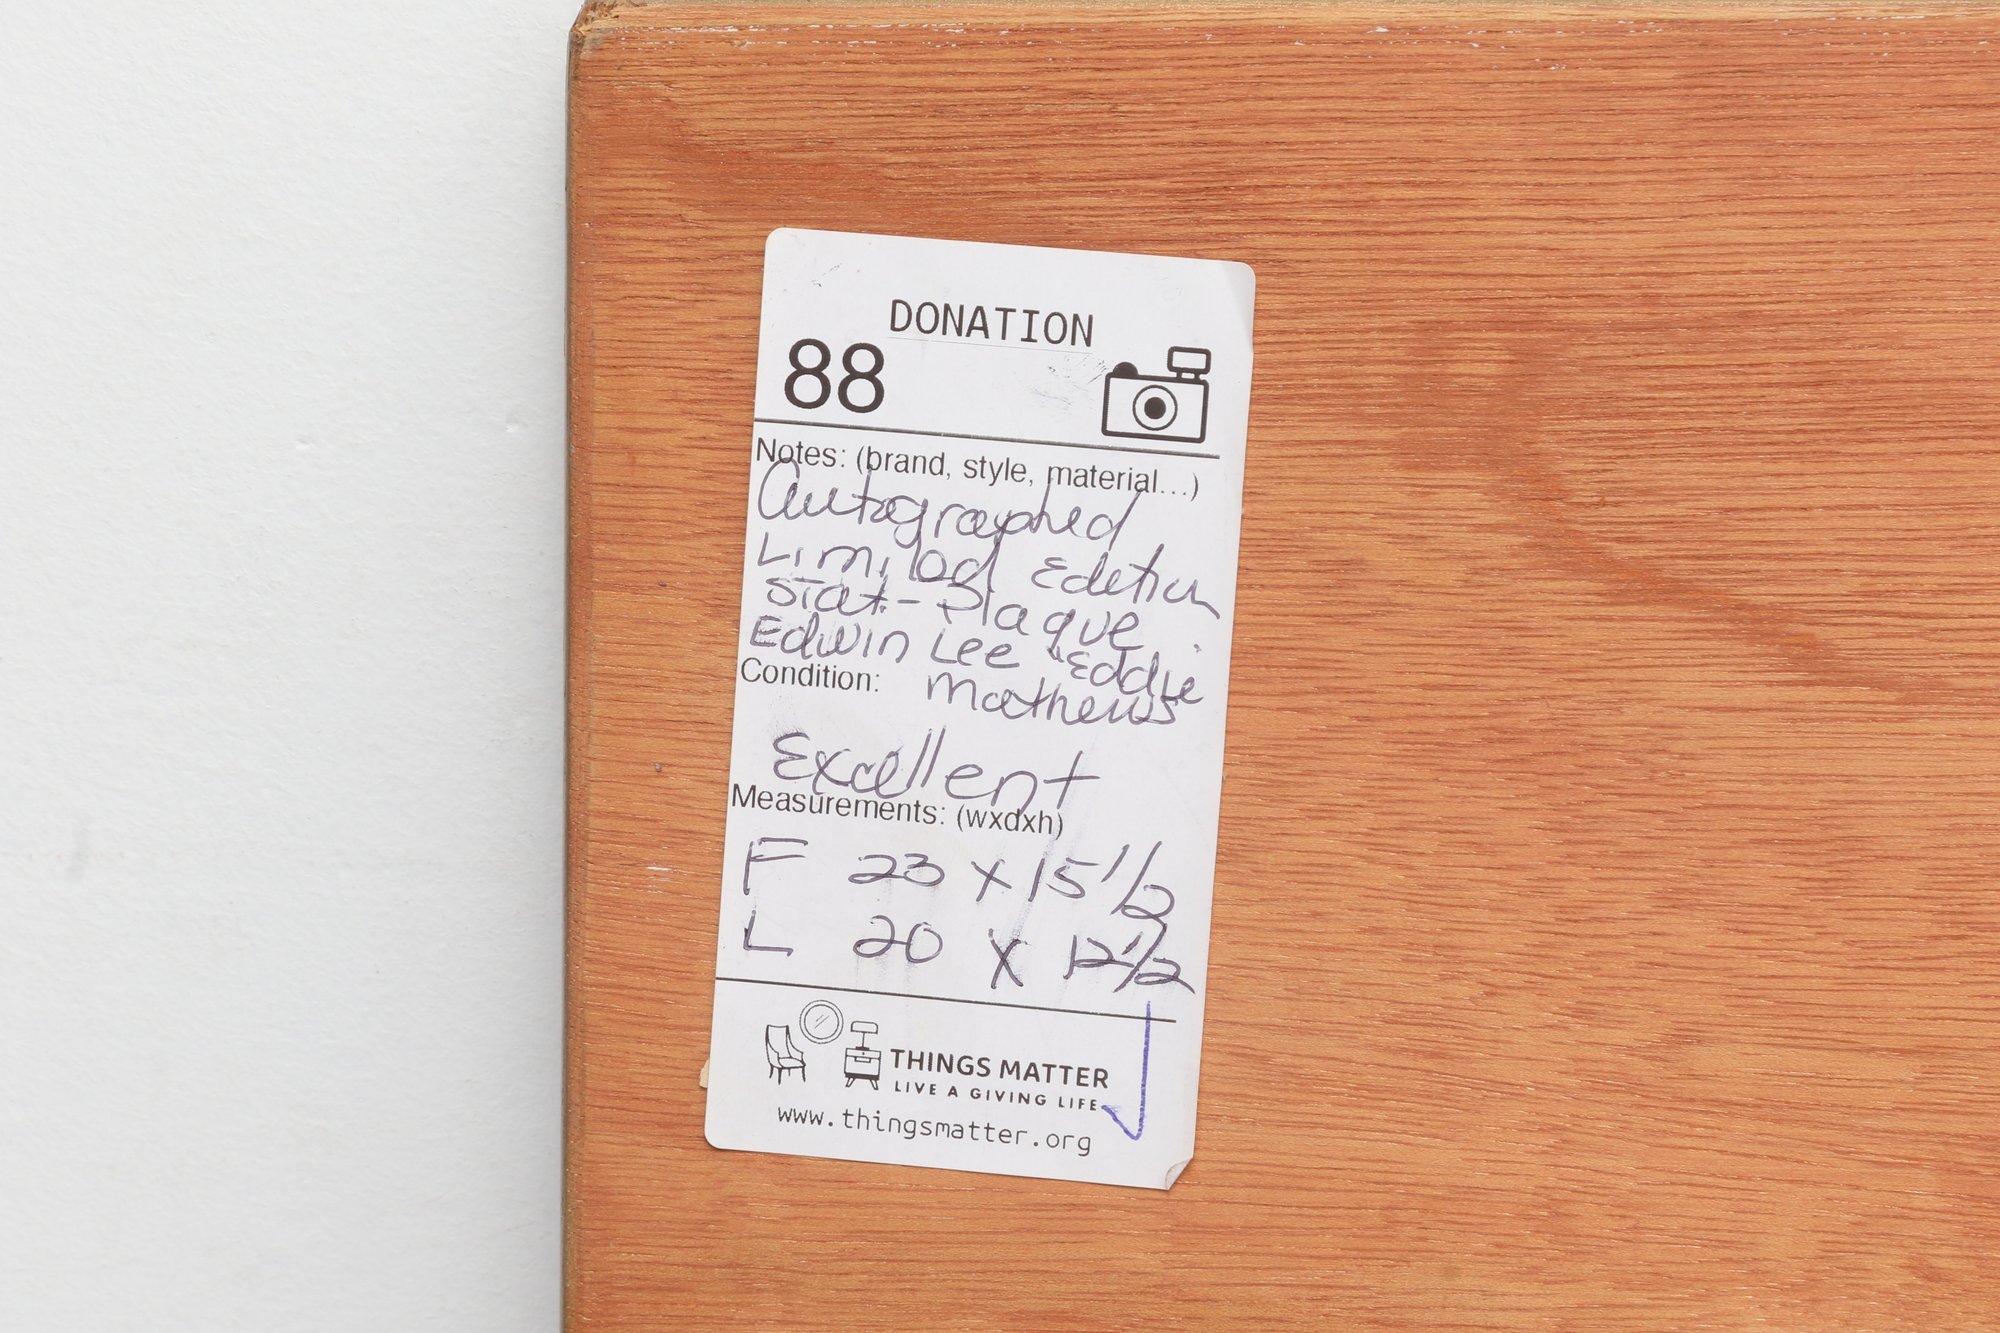 DONATION
88
Notes: (brand, style, material...)
Autographed
Limited Edition
Stat-Plaque
Edwin Lee "Eddie"
Condition: Mathews
Excellent
Measurements: (wxdxh)
F 23 x 15 1/2
L 20 x 12 1/2
THINGS MATTER
LIVE A GIVING LIFE
www.thingsmatter.org